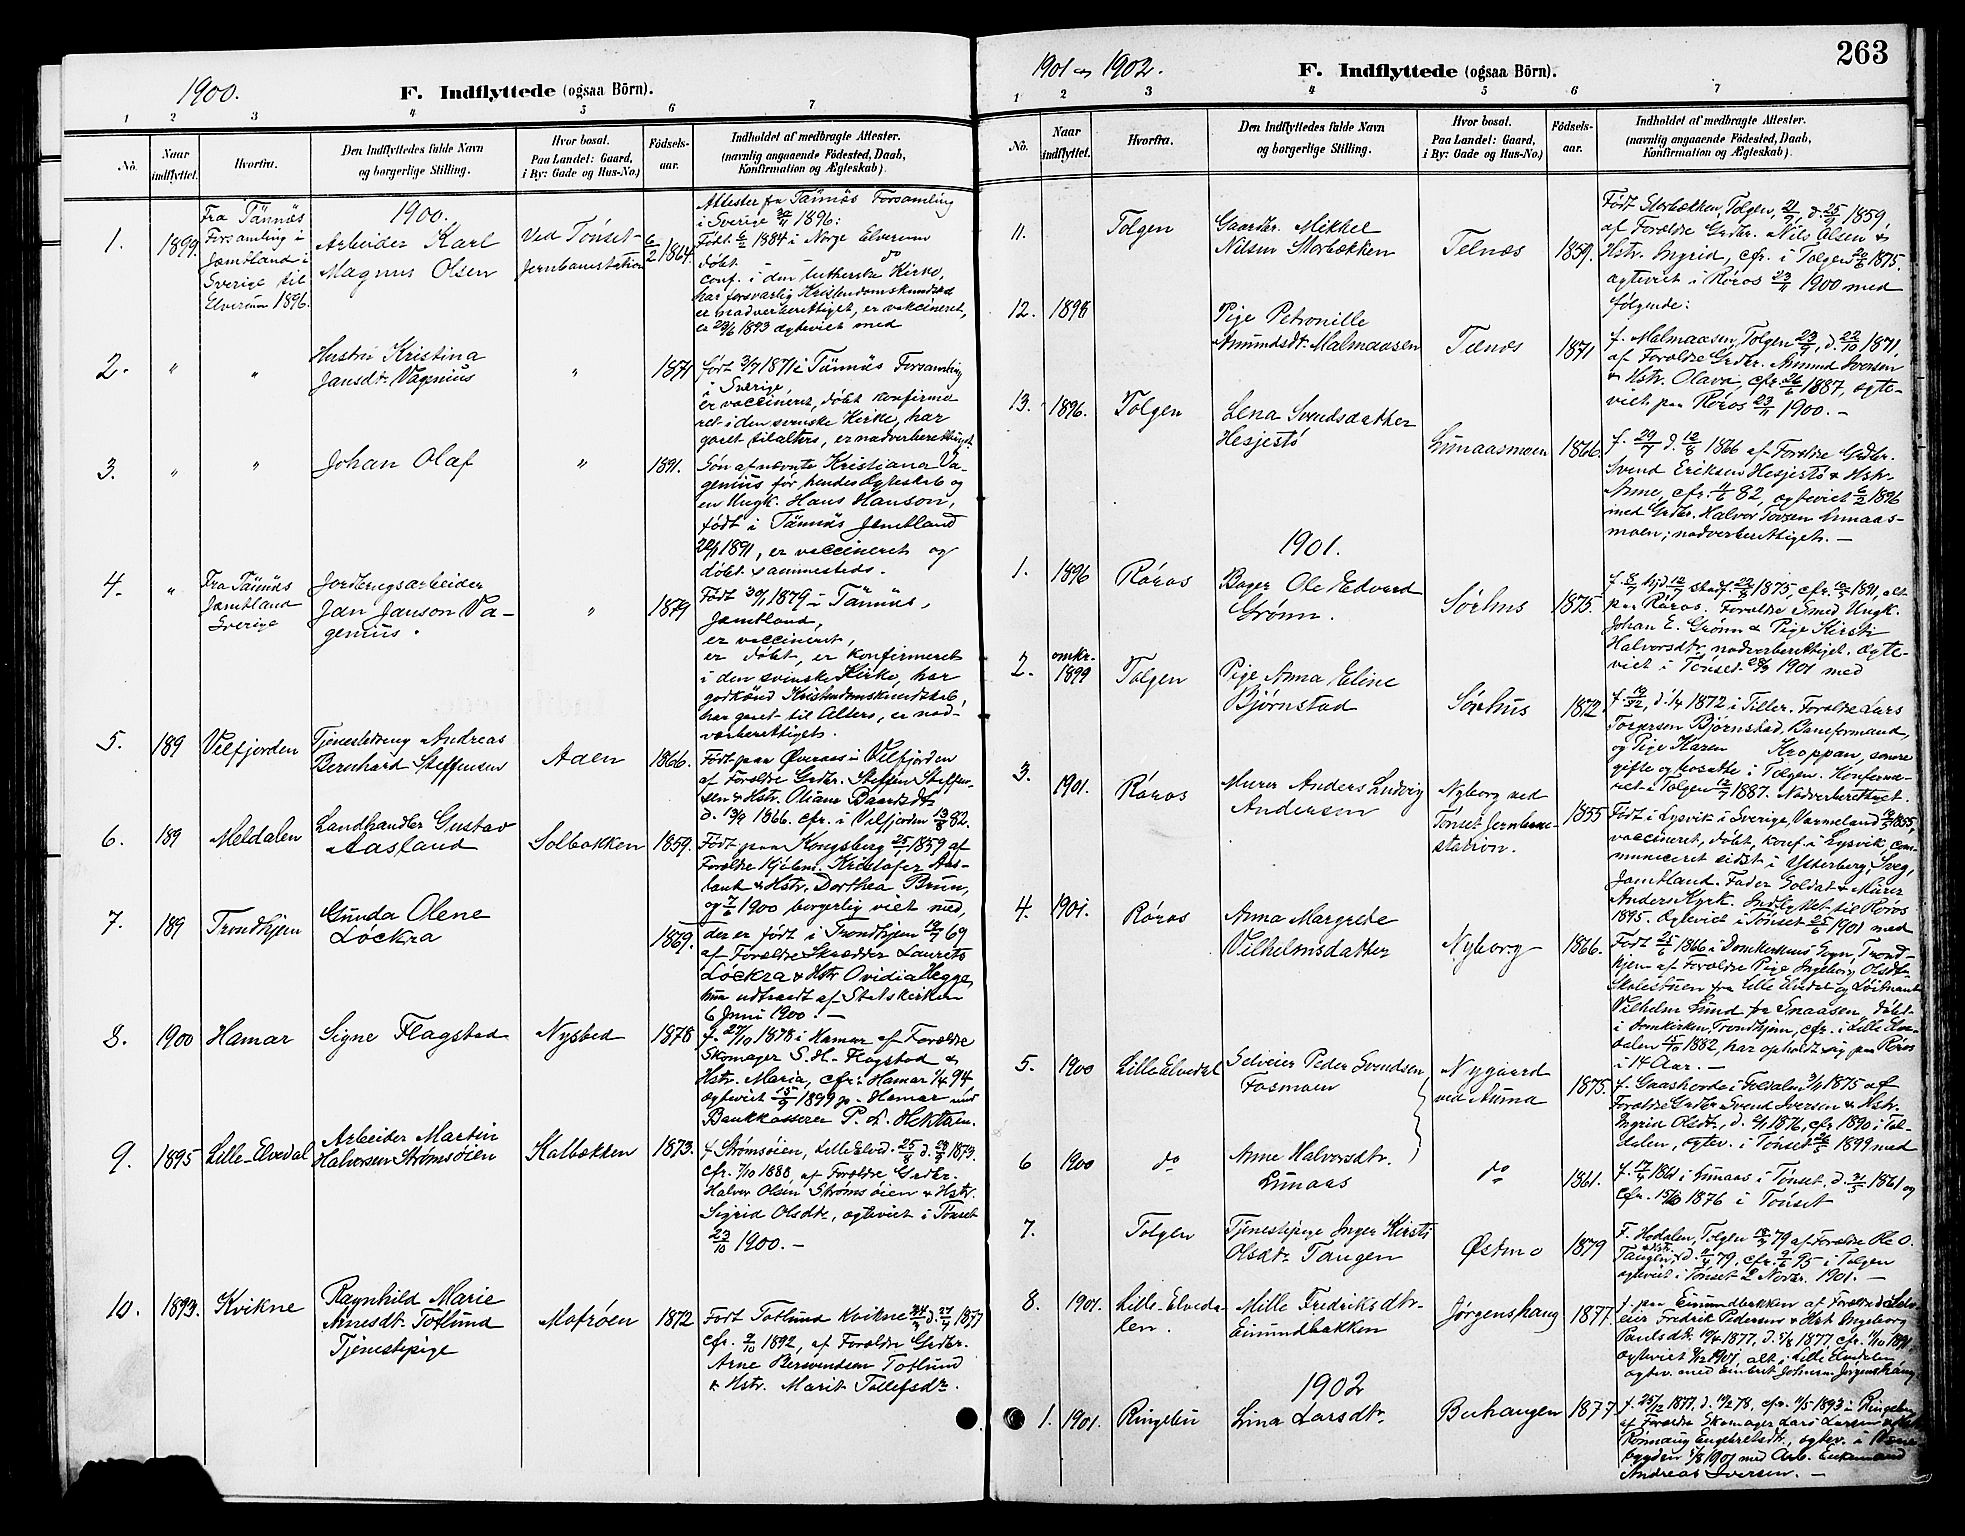 1900.
F. Indflyttede (ogsaa Börn).
1 2 3 4 5 6 7
No.
Naar indflyttet.
Hvorfra.
Den Indflyttedes fulde Navn og borgerlige Stilling.
Hvor bosat. Paa Landet: Gaard, i By: Gade og Hus-No.)
Födsels-aar.
Indholdet af medbragte Attester. (navnlig angaaende Födested, Daab, Konfirmation og Ægteskab).
1900.
1. 1899.
Fra Tännäs
Forsamling i
Jämtland i
Sverige til
Elverum 1896.
Arbeider Karl
Magnus Olsen
Ved Tønset
Jernbanestation
6/2 1864.
Attester fra Tännäs Forsamling
i Sverige 1896:
Født 6/2 1884 i Norge Elverum
døbt do
conf. i den lutherske Kirke,
har forsvarlig Kristendomskundskab
er nadverberettiget, er vaccineret,
er 23/6 1893 ægteviet med
2. " "
Hustru Kristina
Jansdt. Vagenius
" 1871
født 3/7 1871 i Tännäs Forsamling
i Sverige,
er vaccineret, døbt, konfirme
ret i den svenske Kirke, har
gaaet til alters, er nadverberettiget.
3. " "
Johan Olaf
" 1891.
Søn af nævnte Kristiana Va-
genius før hendes Ægteskab og
en Ungk. Hans Hanson,
født i Tännäs Jämtland
1891, er vaccineret og
døbt sammesteds.
4. "
Fra Tännäs
Jämtland
Sverige
Jordbrugsarbeider
Jan Janson Va-
genius.
" 1879
Født 1879 i Tännäs,
Jämtland,
er vaccineret,
er døbt, er konfirmeret
i den svenske Kirke, har
godkjend Kristendomskundskab,
har gaaet til Alters, er nad-
værberettiget.
5. 189 Velfjorden
Tjenestedreng Andreas
Bernhard Steffensen
Aden 1866.
Født paa Øveraas i Velfjorden
af Forældre Grdbr. Steffen Steffen-
sen & Hstr. Oliane Baardsdt.
d. 13/9 1866. cfr. i Velfjorden 13/8 82.
6. 189 Meldalen
Landhandler Gustav
Aasland
Solbakken 1859.
Født paa Kongsberg 25/7 1859 af
Forældre Kristofer Aas-
land & Hstr. Dorthea Brun,
og 7/6 1900 borgerlig viet med,
7. 189 Trondhjem
Gunda Olene
Løckra
1869.
der er født i Trondhjem 69
af Forældre Skrædder Laurits
Løckra & Hstr Ovidia Hegge,
hun udtraadt af Statskirken
6 Juni 1900! —
8. 1900 Hamar
Signe Flagstad
Nysted 1878
f. 27/10 1878 i Hamar af Forældre
Skomager S. H. Flagstad &
Hstr. Maria, cfr. i Hamar 1/4 94,
ægteviet 5/9 1899 p. Hamar med
Bankkasserer P. L. Hektoen.
9. 1895 Lille-Elvedal
Arbeider Martin
Halvorsen Strømsøien
Kalbækken 1873.
f. Strømsøien, Lille Elved. 25/8 d. 1873.
cfr. 7/10 1888, af Forældre Grdbr.
Halvor Olsen Strømsøien & Hstr.
Sigrid Olsdtr, ægteviet i Tønset
23/10 1900. —
10. 1893. Kvikne
Ragnhild Marie
Arnesdt. Totlund
Tjenestepige
Mofröen 1872
Født Totlund Kvikne
cfr. 2/10 1892, af Forældre Grdbr.
Arne Bersvendsen Totlund
& Hstr. Marit Tollefsdtr.
1901 og 1902.
F. Indflyttede (ogsaa Börn).
263
1 2 3 4 5 6 7
No.
Naar indflyttet.
Hvorfra.
Den Indflyttedes fulde Navn og borgerlige Stilling.
Hvor bosat. Paa Landet: Gaard, i By: Gade og Hus-No.)
Födsels-aar.
Indholdet af medbragte Attester. (navnlig angaaende Födested, Daab, Konfirmation og Ægteskab).
11. Tolgen
Gaardbr. Mikkel
Nilsen Storbækken
Telnæs 1859.
Født Storbækken, Tolgen, 21/9, d. 25/9 1859,
af Forældre Grdbr. Nils Olsen &
Hstr. Ingrid, cfr. i Tolgen 1875.
ægteviet i Røros 23/11 1900 med
følgende:
12. 1898
Pige Petronille
Amundsdt. Malmaasen
Telnæs 1871
f. Malmaasen, Tolgen 23/9, d. 22/10 1871,
af Forældre Grdbr. Amund Iversen
& Hstr. Olava, cfr. 26/6 1887, ægte-
viet paa Røros 23/11 1900. —
13. 1896. Tolgen
Lena Svendsdatter
Hesjestø
Lunaasmoen 1866.
f. 29/7 d. 12/8 1866 af Forældre Grdbr.
Svend Eriksen Hesjestø & Hstr.
Anne, cfr. 4/6 82, ægteviet 6/2 1896
med Grdbr. Halvor Tovsen Lunaas-
moen; nadverberettiget. —
1901.
1. 1896 Røros
Bager Ole Edvard
Grønn.
Sørhus 1875.
f. 8/7 hjd. stadf. 1875, cfr. 1891, alt
paa Røros. Forældre Smed Ungk.
Johan E. Grønn & Pige Kirsti
Halvorsdtr. nadverberettiget. ægte-
viet i Tønset 1901 med
2. omkr. 1899 Tolgen
Pige Anna Eline
Bjørnstad
Sørhus 1872
f. d. 1872 i Tiller. Forældre Lars
Torgersen Bjørnstad, Baneformand,
og Pige Karen Kroppan, senere
gifte og bosatte i Tolgen. Konfirme-
ret i Tolgen 1887. Nadverberettiget.
3. 1901. Røros
Murer Anders Ludvig
Andersen
Nyborg ved
Tønset Jernbane-
station.
1855
Født i Lysvik i Sverige, Varmeland 1855,
vaccineret, døbt, konf. i Lysvik, com-
municeret sidst i Ytterberg, Sveg,
Jämtland. Fader Soldat & Murer
Anders Kyrk. Indflyttet til Røros
1895. Ægteviet i Tønset 25/6 1901 med
4. 1901. Røros
Anna Margrete
Vilhelmsdatter
Nyborg 1866.
Født 25/6 1866 i Domkirkens Sogn, Trond-
hjem af Forældre Pige Ingeborg Olsdt.
fra Lille Elvedal og Løitnant
Vilhelm Lund fra Snaasen, døbt
i Domkirken, Trondhjem, cfr. i Lille Elve-
dalen 1882, har opholdt sig paa Røros
i 14 Aar. —
5. 1900 Lille Elvedal
Selveier Peder Svendsen
Fosmoen
Nygaard
ved Auma
1875.
f. i Foldalen 1875 af
Forældre Grdbr Svend Iversen & Hstr.
Ingrid Olsdt, d. 1876, cfr. 1890 i Fol-
dalen, ægtev. i Tønset 1899 med
6 1900 do
Anne Halvorsdtr.
Lunaas
do 1861.
f. 1861 i Lunaas i Tønset, d. 1861 og
cfr. 1876 i Tønset
7. Tolgen
Tjenestepige Inger Kirsti
Olsdtr Tangen
Østmo 1879
F. Hodalen, Tolgen 79 af Forældre Ole O.
Tangen & Hstr. d. 79, cfr. 95 i Tolgen
ægteviet i Tønset 2 Novbr. 1901. —
8. 1901. Lille-Elveda-
len.
Mille Fredriksdtr.
Eimundbakken
Jørgenshaug 1877.
f. paa Eimundbakken af Forældre Selv-
eier Fredrik Pedersen & Hst. Ingeborg
Paulsdt. 1877, d. 1877, cfr. 1891,
ægteviet 1901, alt i Lille Elvedalen,
ægtev. med Eimbert Johnsen Jørgenshaug
1902
1. 1901. Ringebu
Lina Larsdtr.
Buhaugen 1877
f. 25/12 1877, d. 78, cfr. 1893 i Ringebu
af Forældre Skomager Lars Larsen
Rønnaug Engebretsdt, ægtev. i
bygden 1901 med Arb. Enkemand
Andreas Iversen. —